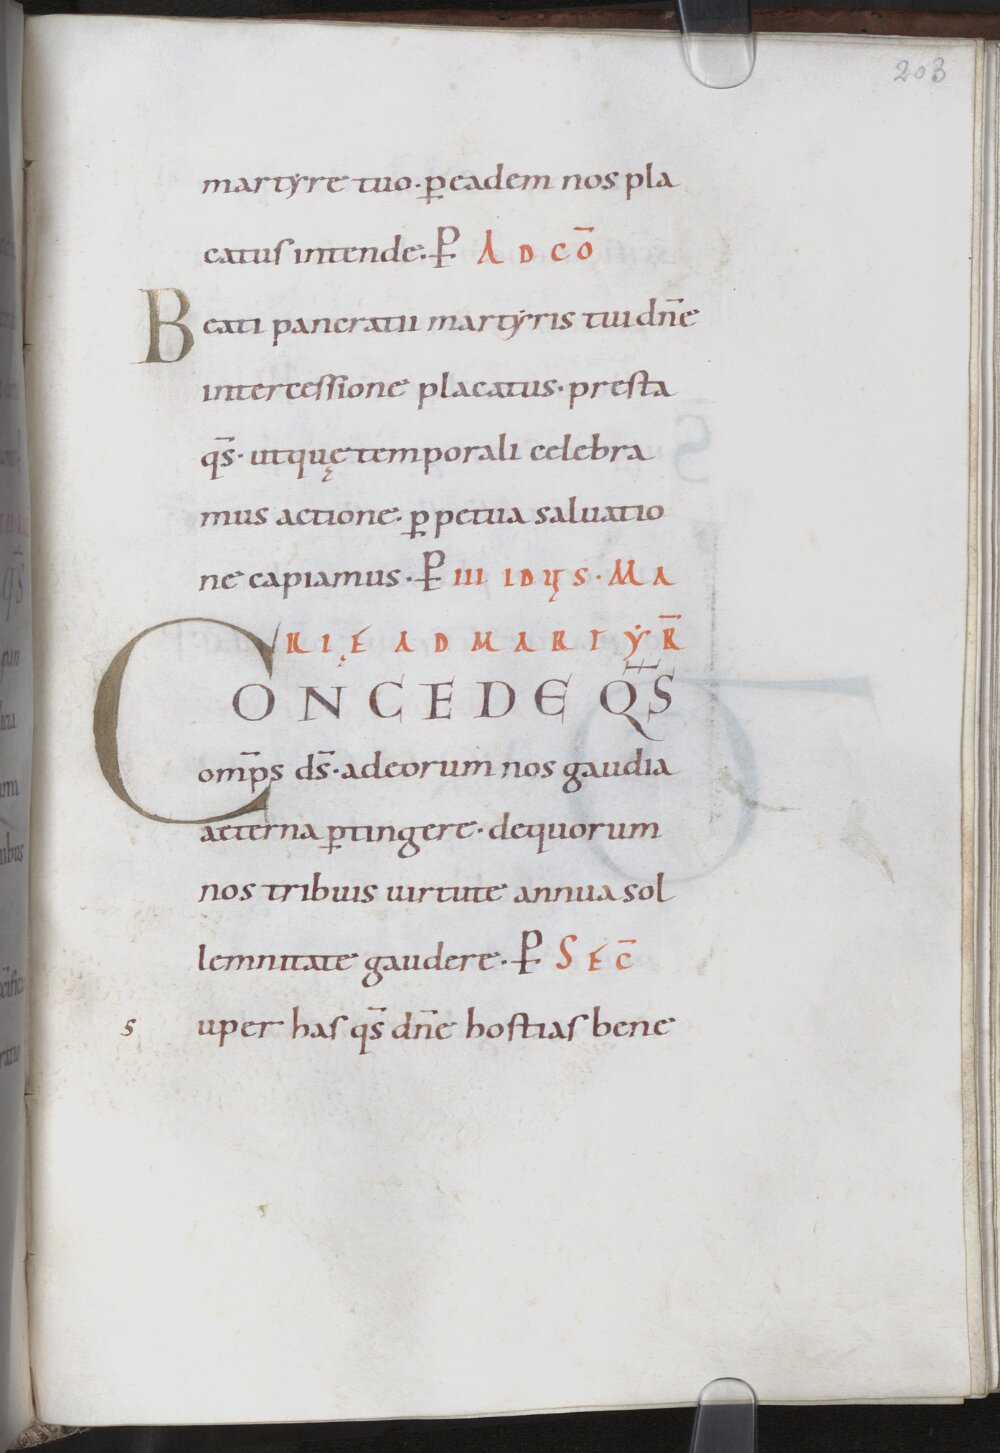 203
martẏre tuo· ꝑ eadem nos pla
catus intende· P̵ AD CŌ
Beati pancratii martẏris tui dn̄e
intercessione placatus· presta
qs̄· ut quę temporali celebra
mus actione· ꝑpetua saluatio
ne capiamus· P̵ III IDUS· MA
RIĘ AD MARTẎR̄
CONCEDE QS̄
omp̄s ds̄· ad eorum nos gaudia
aeterna ꝑtingere· de quorum
nos tribuis uirtute annua sol
lemnitate gaudere· P̵ SEC̄
s uper has qs̄ dn̄e hostias bene